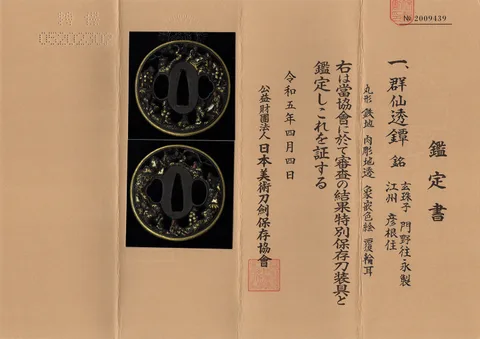 № 2009439
鑑定書
一、群仙透鐔 銘
玄珠子 門野往永製
江州 彦根住
丸形 鉄地 肉彫地透 象嵌色絵 覆輪耳
右は當協會に於て審査の結果特別保存刀装具と
鑑定しこれを証する
令和五年四月四日
公益財團法人 日本美術刀劍保存協會